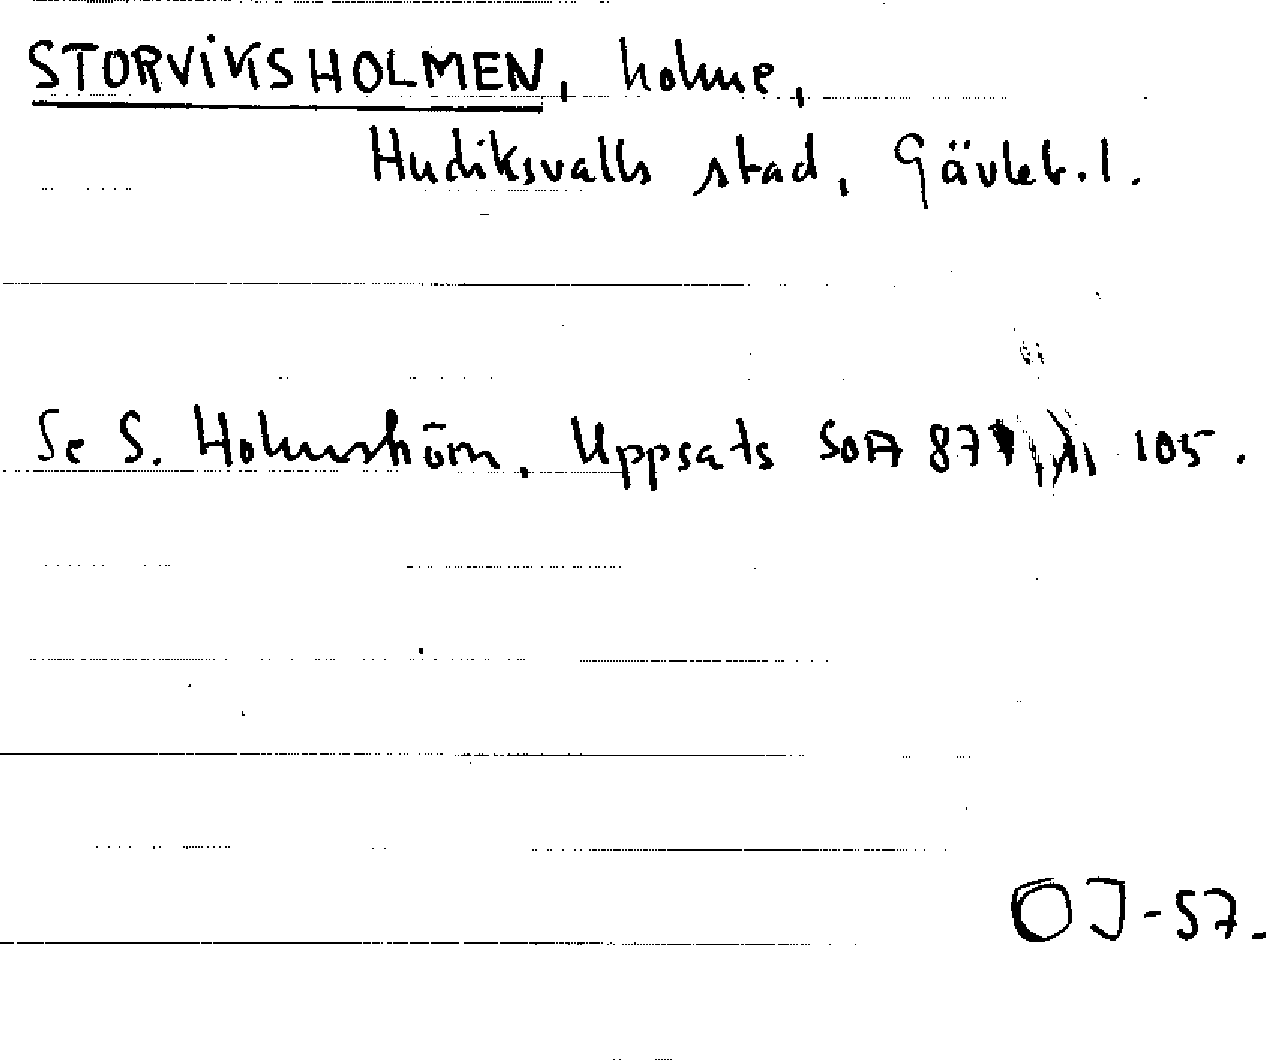 STORVIKSHOLMEN, holme,
Hudiksvalls stad, Gävleb. l.
Se S. Holmström, Uppsats SOA 87 105.
OJ-57.